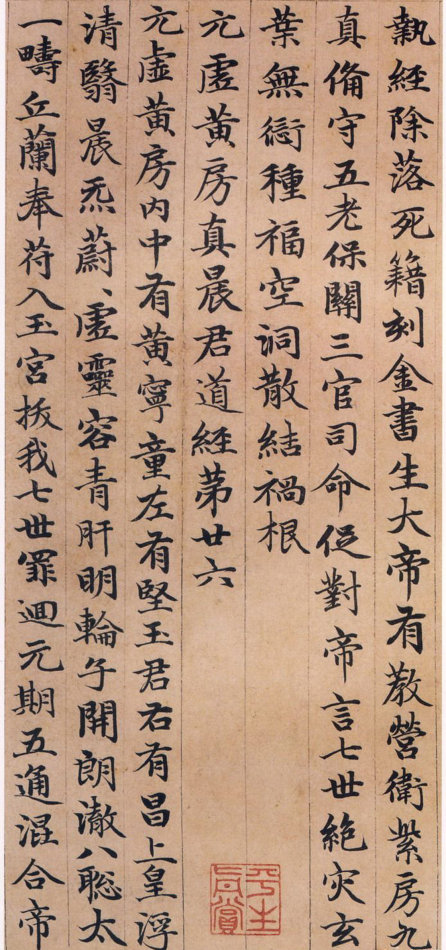 執經除落死籍刻金書生大帝有教營衛紫房九
真俻守五老保關三官司命促對帝言七世絶灾玄
葉無愆種福空洞散結禍根
元虛黃房真晨君道經苐廿六
元虛黃房内中有黃寧童左有堅玉君右有昌上皇浮
清翳晨炁蔚、虛靈容青肝明輪午開朗澈八聡太
一疇丘蘭奉苻入玉宮拔我七世罪逥元期五通混合帝